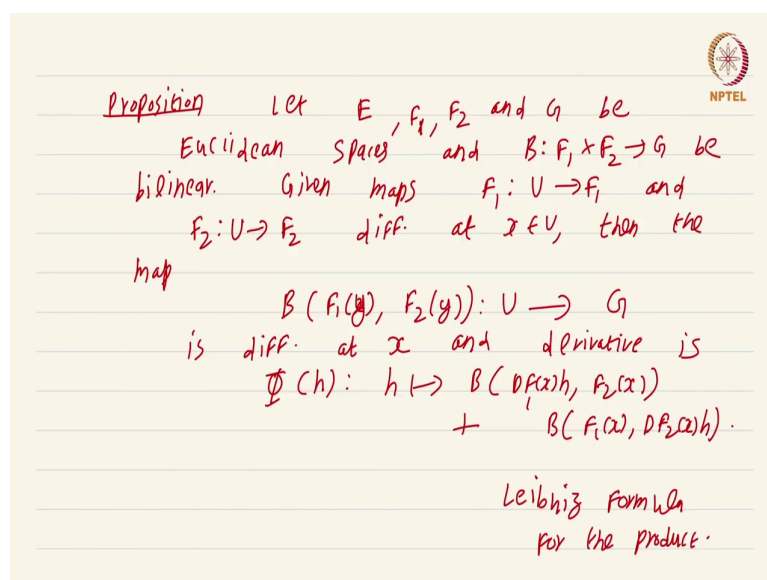 NPTEL
Proposition Let E, F₁, F₂ and G be
Euclidean spaces and B: F₁ × F₂ → G be
bilinear. Given maps F₁: U → F₁ and
F₂: U → F₂ diff. at x ∈ U, then the
map
B(F₁(y), F₂(y)): U → G
is diff. at x and derivative is
Φ(h): h ↦ B(DF₁(x)h, F₂(x))
+ B(F₁(x), DF₂(x)h).
Leibniz Formula
For the product.